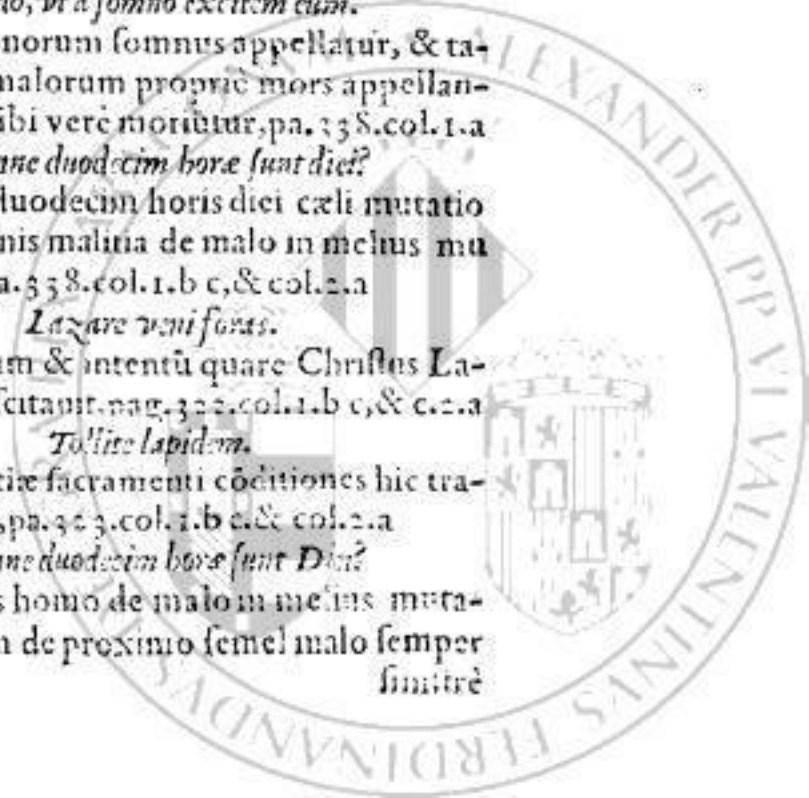 vt a somno excitem eum.
norum somnus appellatur, & ta-
malorum propriè mors appellan-
ibi verè moriūtur, pa. 338. col. 1. a
ne duodecim horæ sunt diei?
duodecim horis diei cæli mutatio
nis malitia de malo in melius mu
a. 338. col. 1. b c, & col. 2. a
Lazare veni foras.
um & intentū quare Christus La-
scitauit. pag. 322. col. 1. b c, & c. 2. a
Tollite lapidem.
tiæ sacramenti cōditiones hic tra-
, pa. 323. col. 1. b c. & col. 2. a
ne duodecim horæ sunt Diei?
s homo de malo in melius muta-
n de proximo semel malo semper
ALEXANDER PP VI VALENTINVS FERDINANDVS